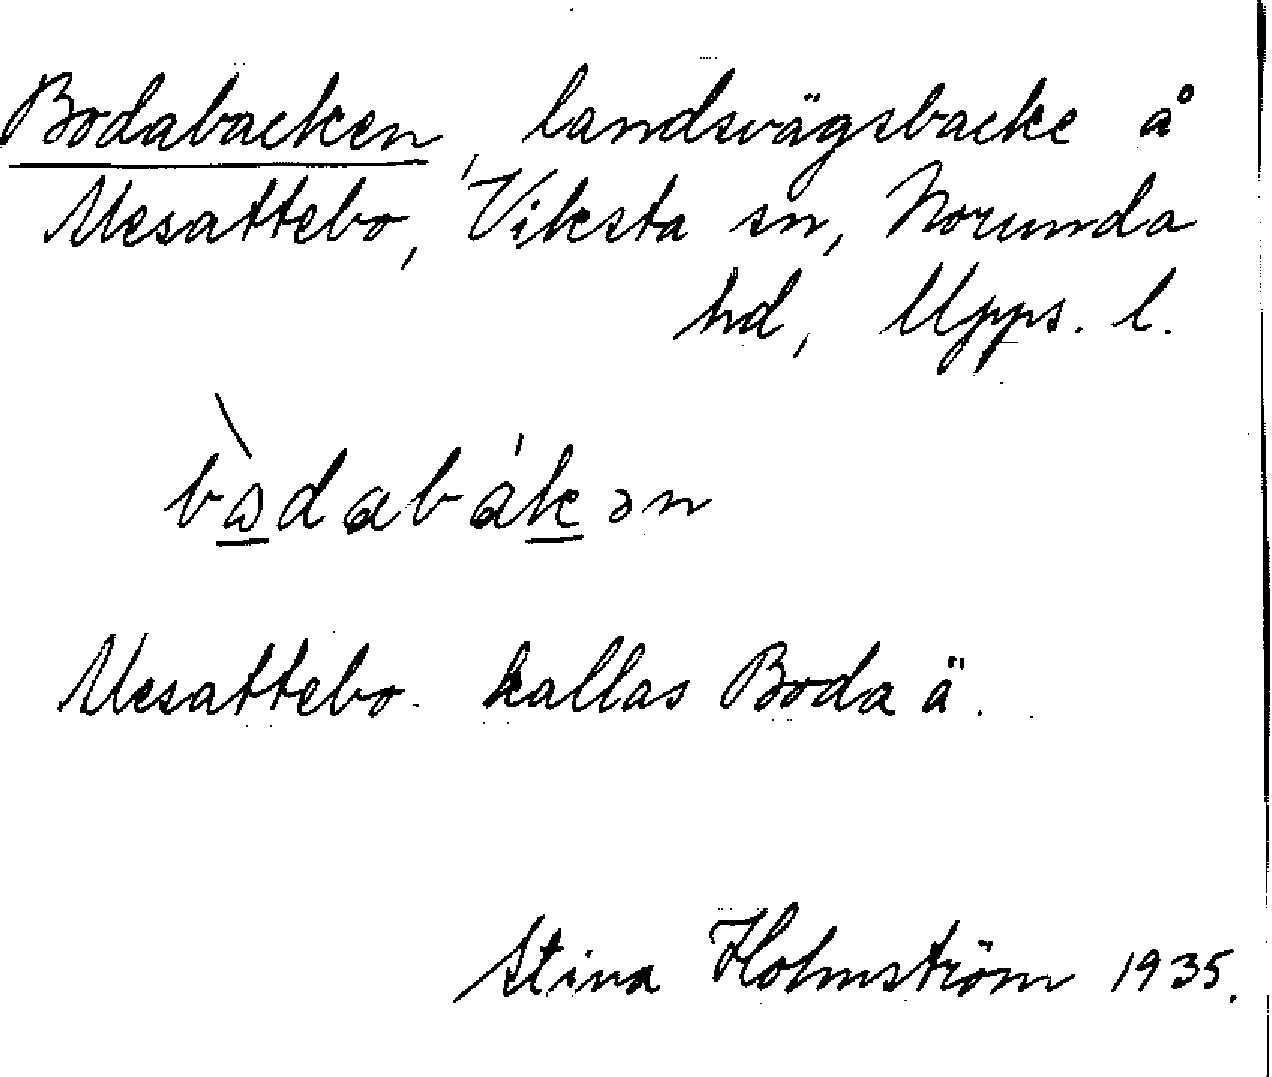 Bodabacken, landsvägsbacke å
Uksattebo, Viksta sn, Norunda
hd, Upps. l.
bὼdabákən
Uksattebo kallas Boda ä.
Stina Holmström 1935.